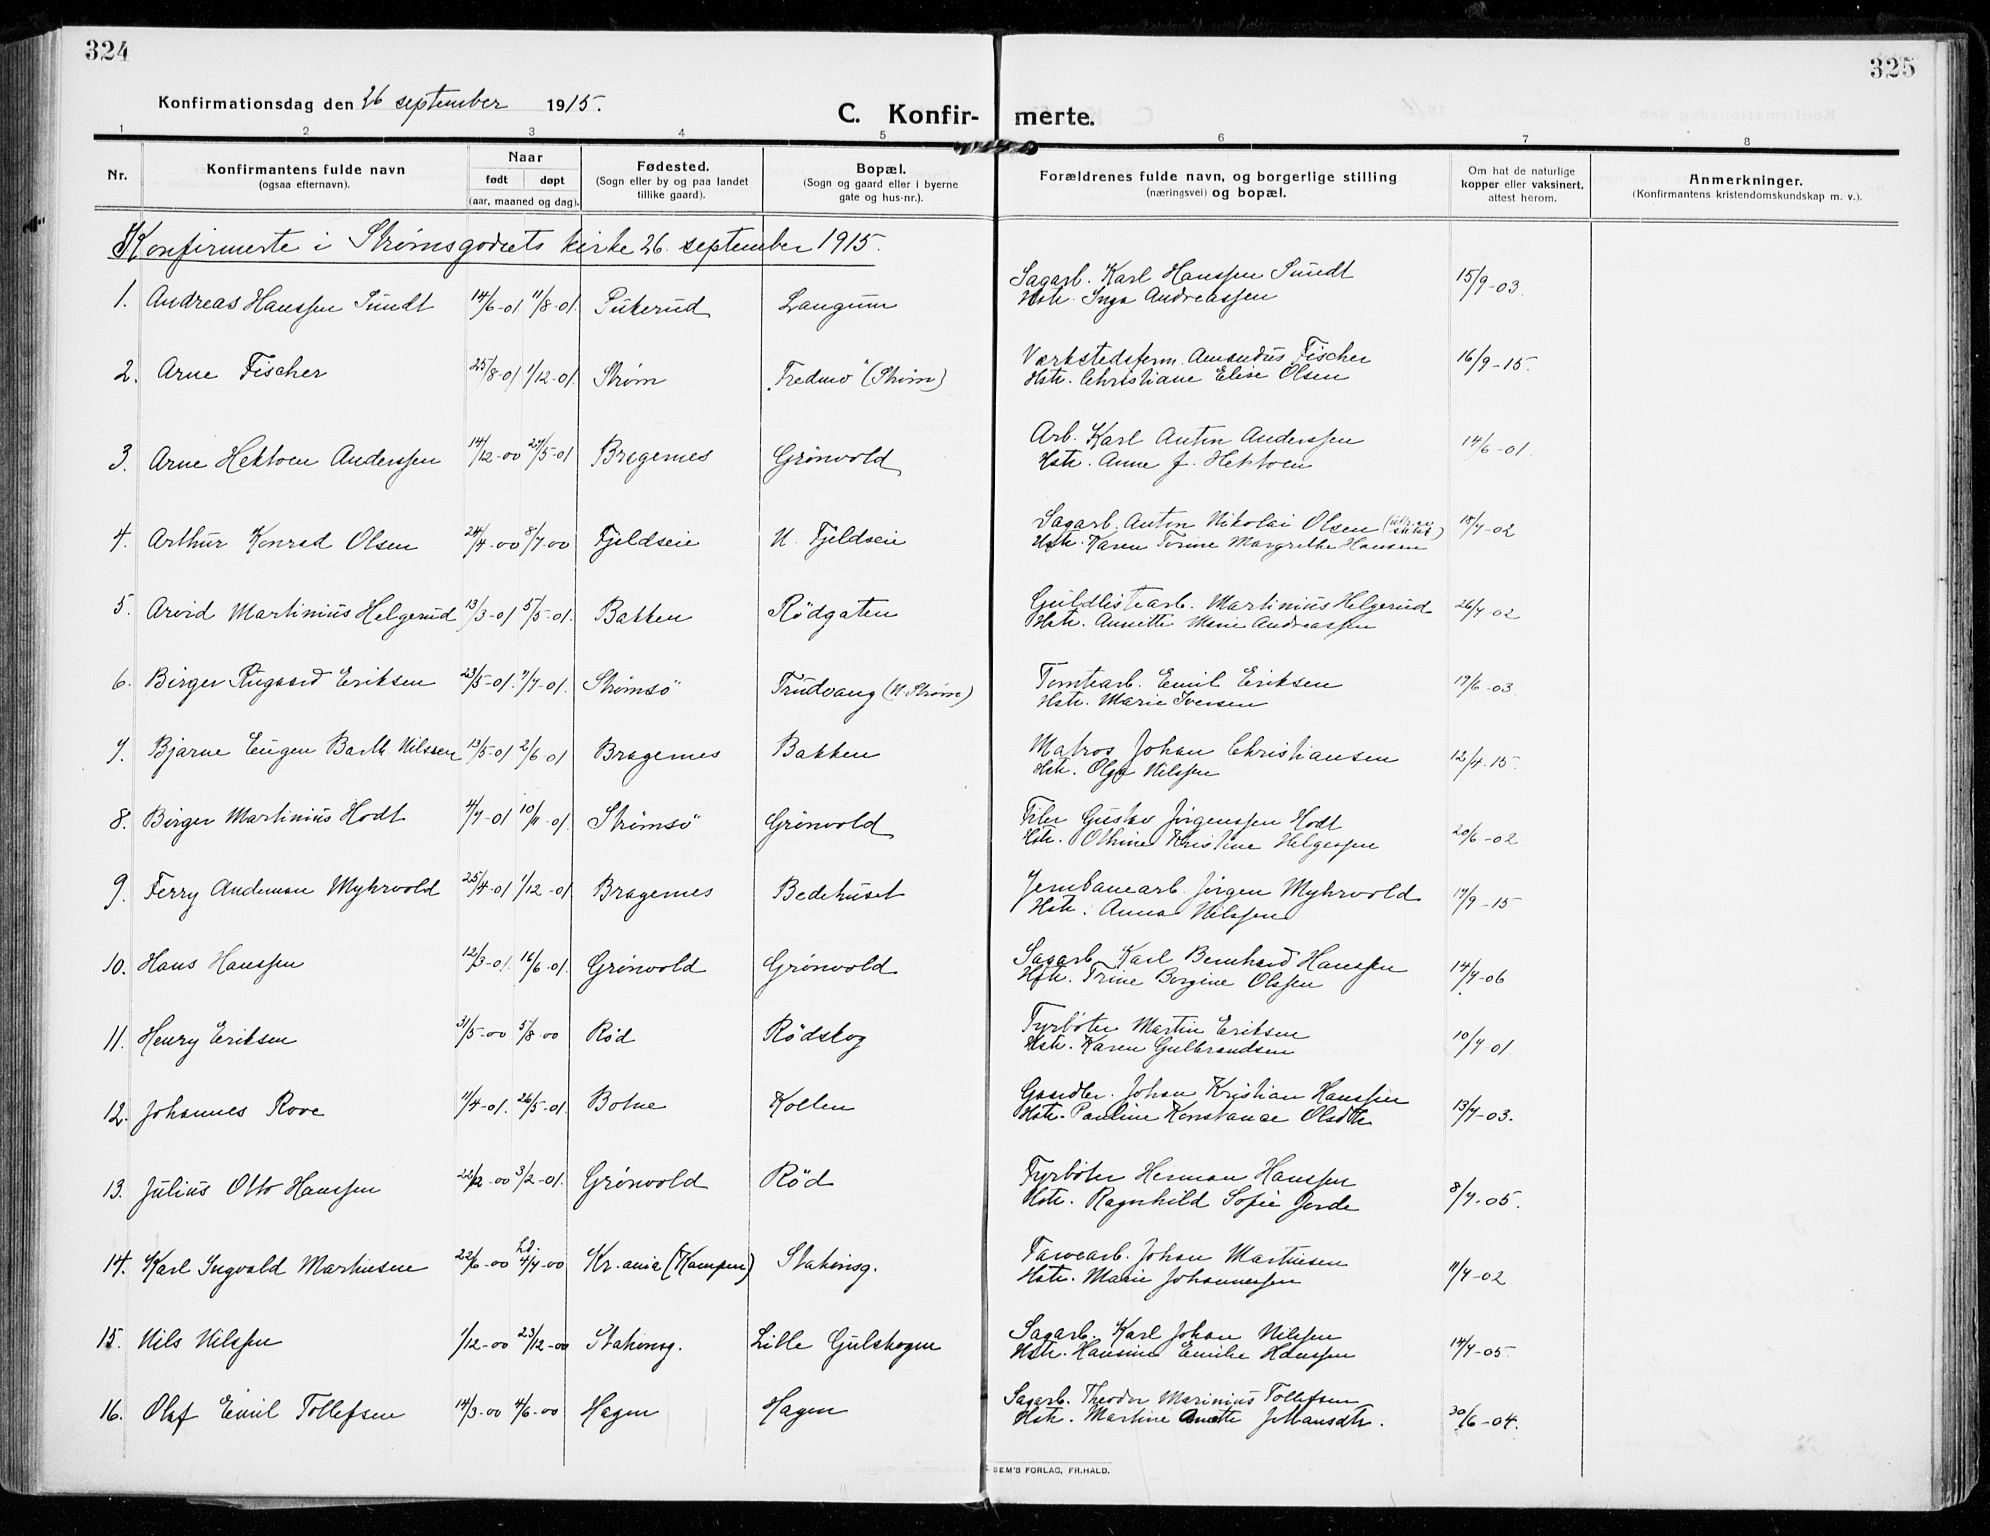 324
325
Konfirmationsdag den 26 september 1915.
C. Konfir- merte.
1 2 3 4 5 6 7 8
Nr.
Konfirmantens fulde navn
(ogsaa efternavn).
Naar
født døpt
(aar, maaned og dag).
Fødested.
(Sogn eller by og paa landet
tillike gaard).
Bopæl.
(Sogn og gaard eller i byerne
gate og hus-nr.).
Forældrenes fulde navn, og borgerlige stilling
(næringsvei) og bopæl.
Om hat de naturlige
kopper eller vaksinert,
attest herom.
Anmerkninger.
(Konfirmantens kristendomskundskap m. v.).
Konfirmerte i Strømsgodsets kirke 26. september 1915.
1. Andreas Hanssen Sundt 14/6-01 11/8-01. Sukerud Langum Sagarb. Karl Hanssen Sundt 15/9-03.
Hstr. Inga Andreassen
2. Arne Fischer 25/8-01 1/12-01. Strøm "Fredmo" (Strøm) Værkstedsform. Amandus Fischer 16/9-15.
Hstr. Christiane Elise Olsen
3. Arne Hektoen Anderssen 14/12-00 27/5-01 Bragernes Grönvold Arb. Karl Anton Anderssen 14/6-01.
Hstr. Anne J. Hektoen
4. Arthur Konrad Olsen 24/4-00 8/7-00 Fjeldseie N. Fjeldseie Sagarb. Anton Nikolai Olsen 18/7-02
Hstr. Karen Torine Margrethe Hansen
5. Arvid Martinius Helgerud 13/3-01 5/5-01. Bakken Rödgaten Guldlistearb. Martinius Helgerud 26/7-02
Hstr. Annette Marie Andreassen
6. Birger Rugaard Eriksen 23/5-01. 7/7-01. Strømsö Trudvang (N. Strøm) Tomtearb. Emil Eriksen 19/6-03.
Hstr. Marie Iversen
7. Bjarne Eugen Barth Nilssen 13/5-01 2/6 01 Bragernes Bakken Matros Johan Christiansen 12/4-15.
Hstr. Olga Nilssen
8. Birger Martinius Hodt 4/7-01 10/11-01. Strømsö Grönvold Filer Gustav Jörgenssen Hodt 20/6-02
Hstr. Othine Kristine Helgessen
9. Ferry Andersson Myhrvold 25/4-01 1/12-01. Bragernes Bedehuset Jernbanearb. Jörgen Myhrvold 17/9-15
Hstr. Anna Nilssen
10. Hans Hanssen 12/3-01. 16/6-01. Grönvold Grönvold Sagarb. Karl Bernhard Hanssen 14/7-06
Hstr. Trine Bergine Olssen
11. Henry Eriksen 31/5-00 5/8-00 Rød Rödskog Fyrböter Martin Eriksen 10/7 01
Hstr. Karen Gulbrandsen
12. Johannes Rove 11/4-01. 26/5-01. Botne Kollen Gaardbr. Johan Kristian Hanssen 13/7-03.
Hstr. Pauline Konstance Olsdtr
13. Julius Otto Hanssen 22/12-00 3/2-01. Grønvold Röd Fyrböter Herman Hanssen 8/7-05.
Hstr. Ragnhild Sofie Jorde
14. Karl Ingvald Martinsen 22/6-00 4/7-00 Kr.ania (Kampen) Stationsg. Farvearb. Johan Martinsen 11/7-02
Hstr. Marie Johannessen
15. Nils Nilssen 1/12-00 23/12-00 Stationsg. Lille Gulskogen Sagarb. Karl Johan Nilssen 14/7-05.
Hstr. Hansine Emilie Hanssen
16. Olaf Emil Tollefsen 14/3-00 4/6-00 Hagen Hagen Sagarb. Theodor Marinius Tollefsen 30/6-04.
Hstr. Martine Anette Johansdtr.
SEM'S FORLAG, FR.HALD.